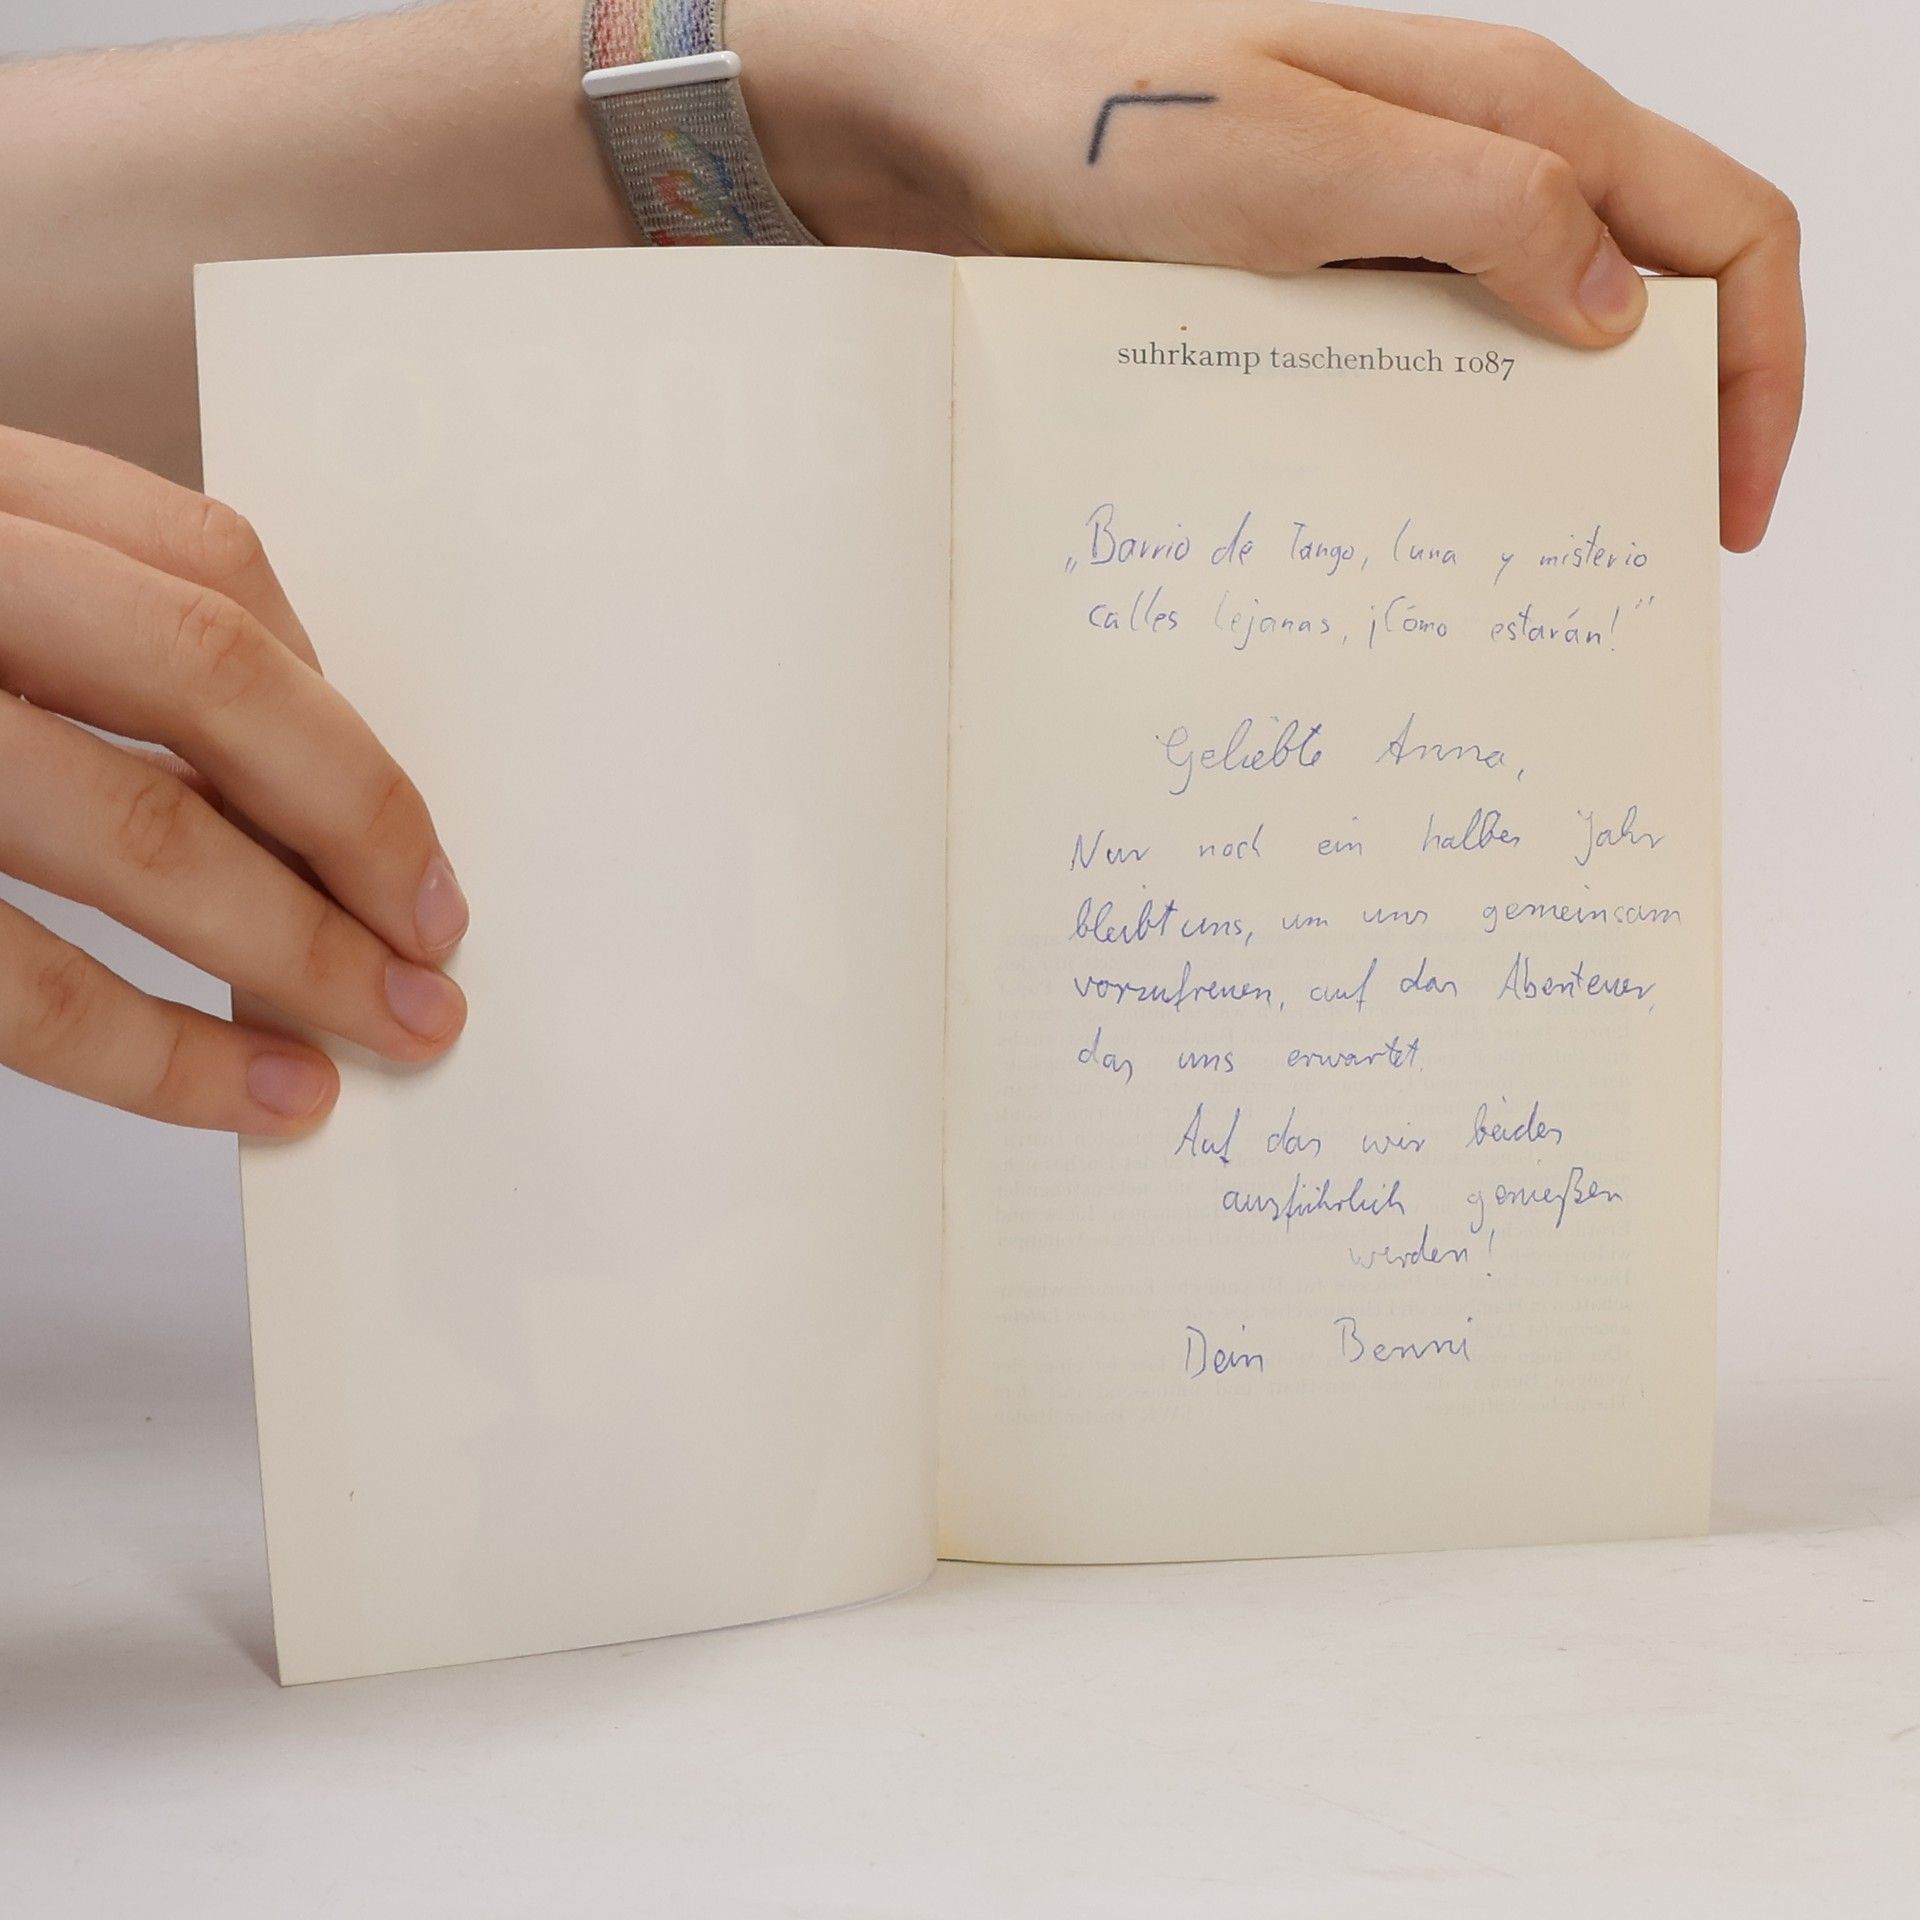 suhrkamp taschenbuch 1087
„Barrio de Tango, luna y misterio
calles lejanas, ¡Cómo estarán!“
Geliebte Anna,
Nur noch ein halbes Jahr
bleibt uns, um uns gemeinsam
vorzufreuen, auf das Abenteuer,
das uns erwartet.
Auf das wir beides
ausführlich genießen
werden!
Dein Benni